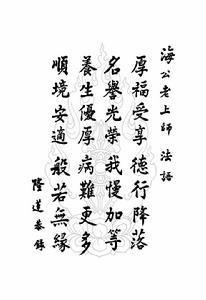 海公老上師 法語
厚福受享 德行降落
名譽光榮 我慢加等
養生優厚 病難更多
順境安適 般若無緣
隆蓮恭錄